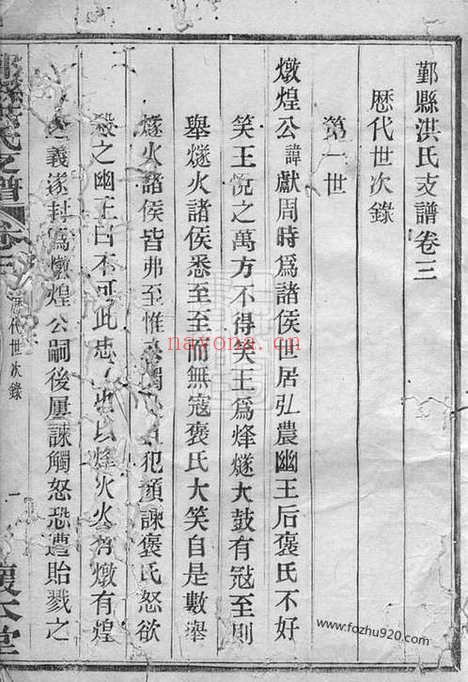 鄞縣洪氏支譜卷三
歷代世次錄
第一世
燉煌公諱獻周時爲諸侯世居弘農幽王后褒氏不好
笑王悅之萬方不得笑王爲烽燧大鼓有寇至則
舉燧火諸侯悉至至而無寇褒氏大笑自是數舉
燧火諸侯皆弗至惟犯顏諫褒氏怒欲
殺之幽王曰不可此忠也以烽火燉有煌
之義遂封爲燉煌公嗣後屢諫觸怒恐遭貽戮之
氏支譜
卷三
歷代世次錄
一
本堂
navona.cn
www.fozhu920.com